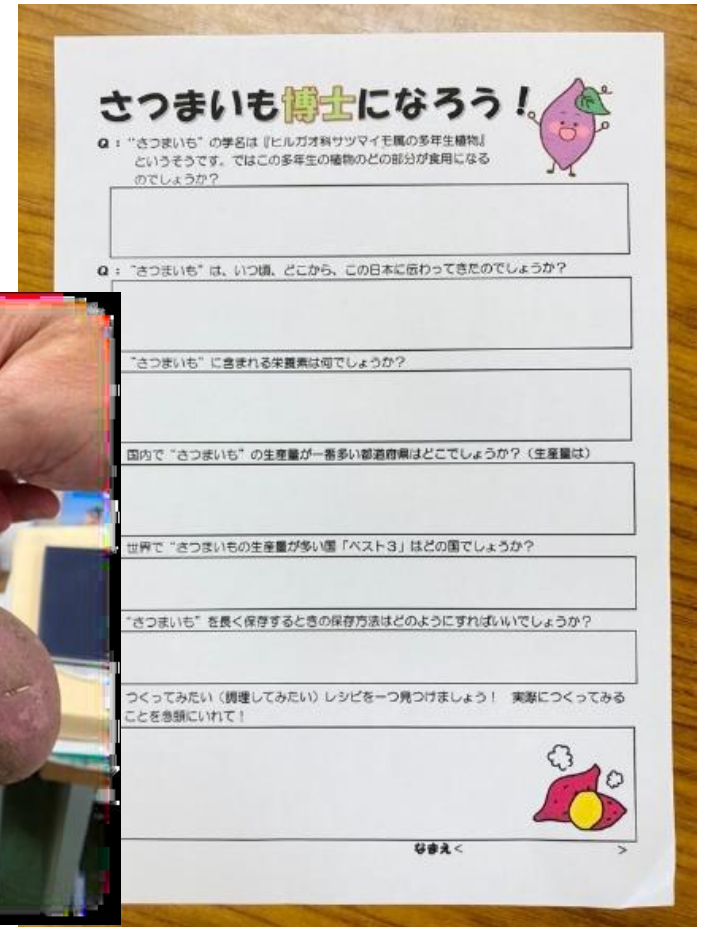 さつまいも博士になろう！
Q：“さつまいも”の学名は『ヒルガオ科サツマイモ属の多年生植物』
というそうです。ではこの多年生の植物のどの部分が食用になる
のでしょうか？
Q：“さつまいも”は、いつ頃、どこから、この日本に伝わってきたのでしょうか？
“さつまいも”に含まれる栄養素は何でしょうか？
国内で“さつまいも”の生産量が一番多い都道府県はどこでしょうか？（生産量は）
世界で“さつまいもの生産量が多い国「ベスト3」はどの国でしょうか？
“さつまいも”を長く保存するときの保存方法はどのようにすればいいでしょうか？
つくってみたい（調理してみたい）レシピを一つ見つけましょう！　実際につくってみる
ことを念頭にいれて！
なまえ＜　　　　　　　　＞